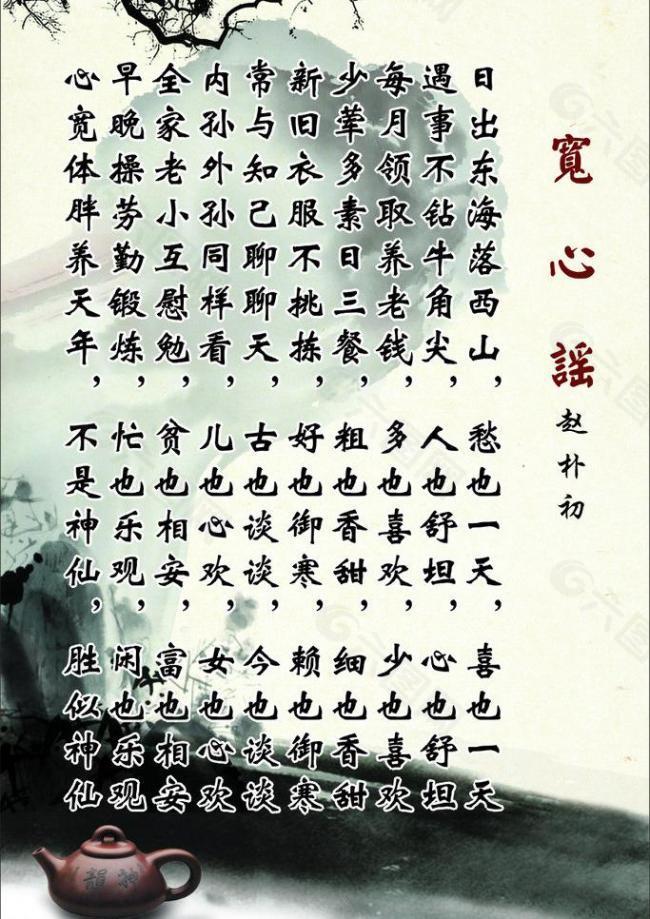 寬心謡
赵朴初
日出东海落西山，愁也一天，喜也一天
遇事不钻牛角尖，人也舒坦，心也舒坦
每月领取养老钱，多也喜欢，少也喜欢
少荤多素日三餐，粗也香甜，细也香甜
新旧衣服不挑拣，好也御寒，赖也御寒
常与知己聊聊天，古也谈谈，今也谈谈
内孙外孙同样看，儿也心欢，女也心欢
全家老小互慰勉，贫也相安，富也相安
早晚操劳勤锻炼，忙也乐观，闲也乐观
心宽体胖养天年，不是神仙，胜似神仙